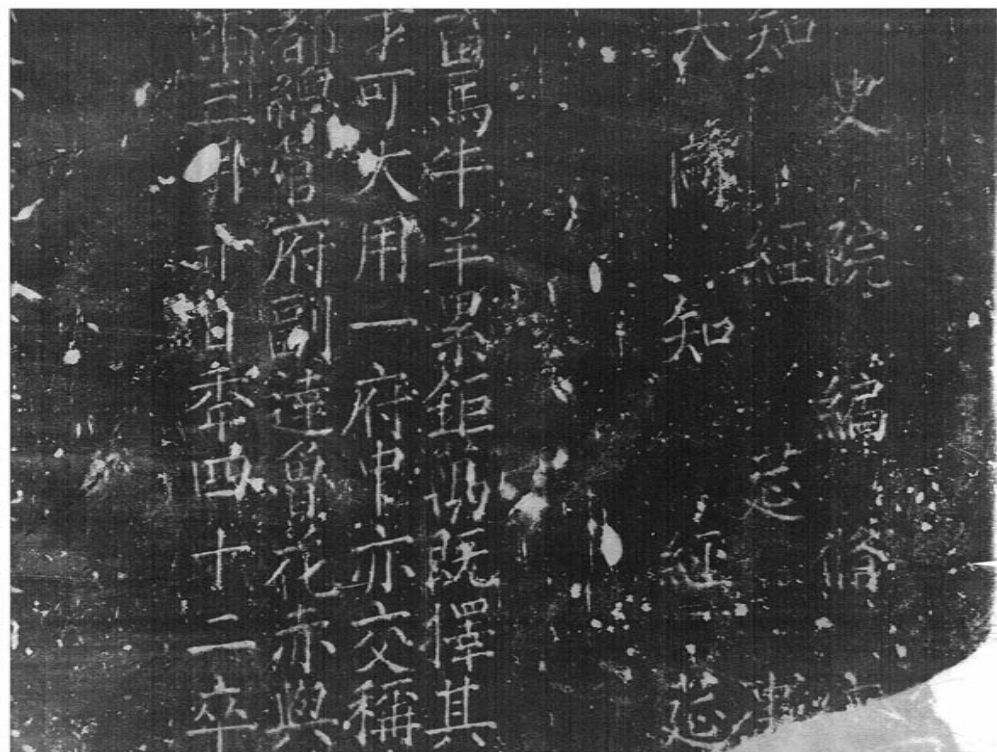 史院編脩
知經筵事
大知經筵
畜馬牛羊累鉅萬既擇其
才可大用一府中亦交稱
都總管府副達魯花赤與
三月日秊四十二卒